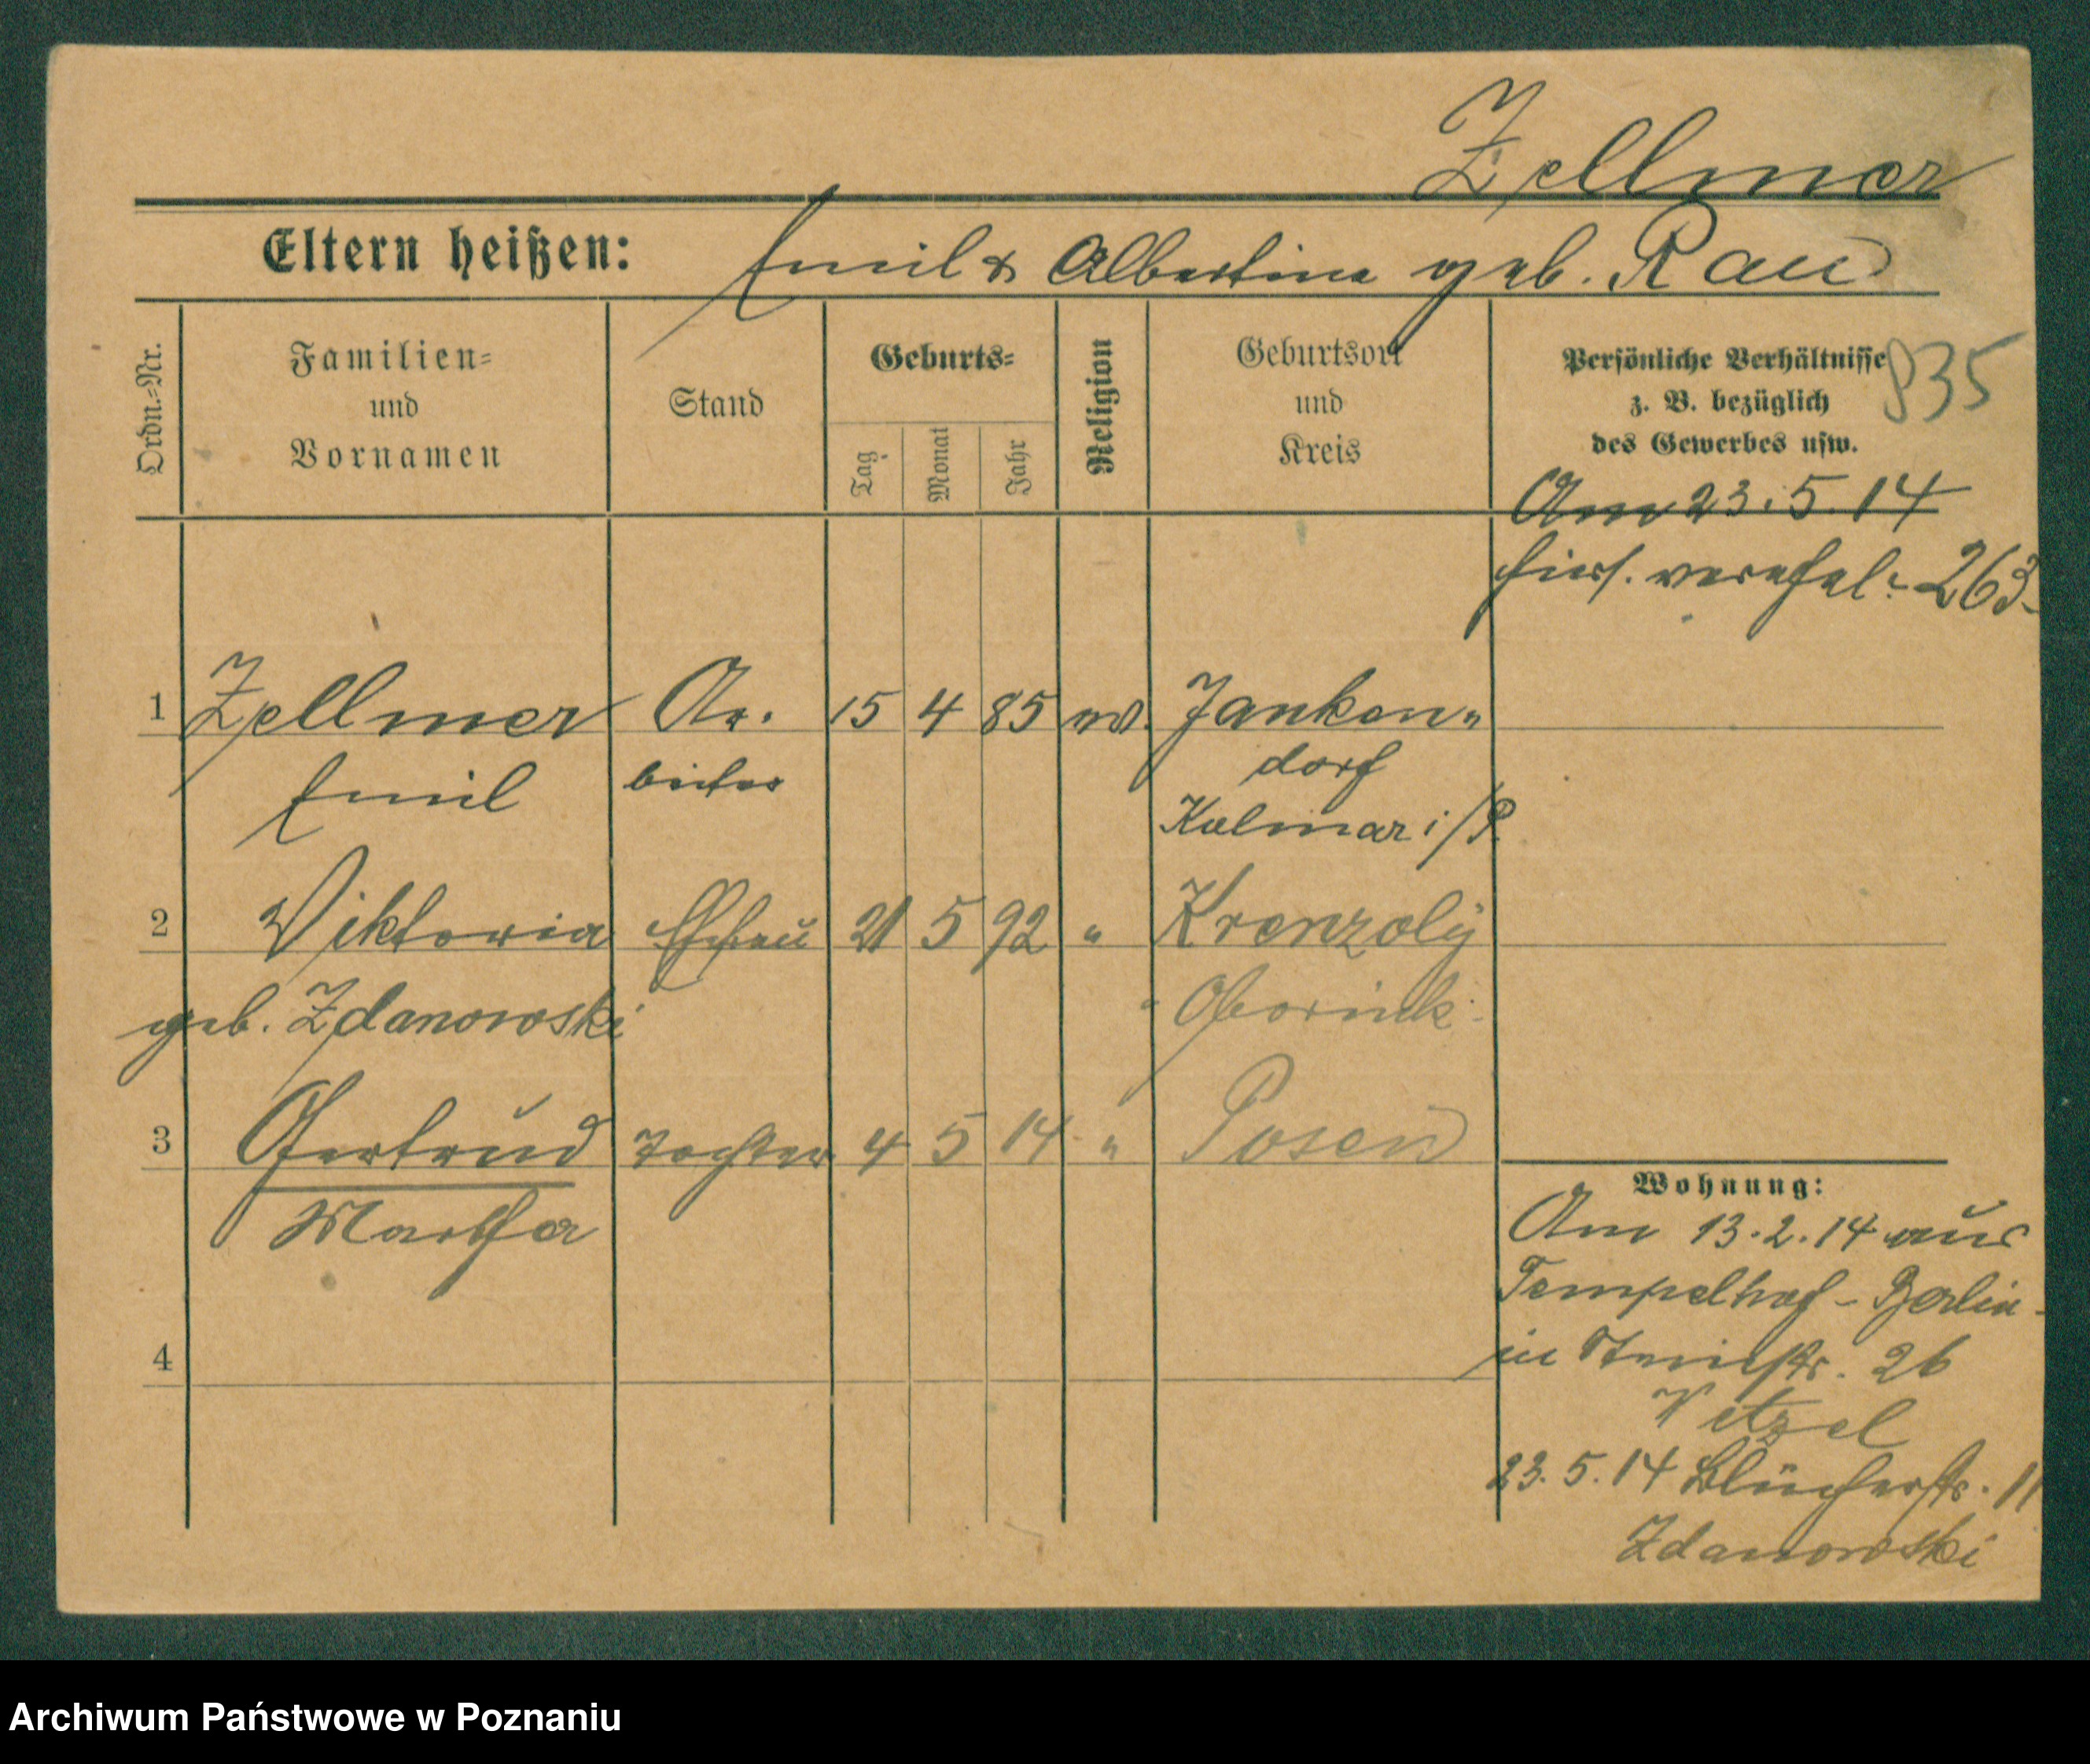 Zellmer
Eltern heißen: Emil & Albertine geb. Rau
Ordn.=Nr.
Familien=
und
Vornamen
Stand
Geburts=
Tag
Monat
Jahr
Religion
Geburtsort
und
Kreis
Persönliche Verhältnisse
z. B. bezüglich
des Gewerbes usw.
835
Am 23.5.14
hier verehel. 263
1 Zellmer Ar. 15 4 85 Janken"
Emil beiter dorf
Kolmar i/P.
2 Viktoria Ehefrau 21 5 92 "
geb. Zdanowski Obornik
3 Gertrud Tochter 4 5 14 " Posen
Martha
Wohnung:
Am 13.2.14 aus
Tempelhof - Berlin
in 26
23.5.14 Blücherstr. 11
Zdanowski
4
Archiwum Państwowe w Poznaniu